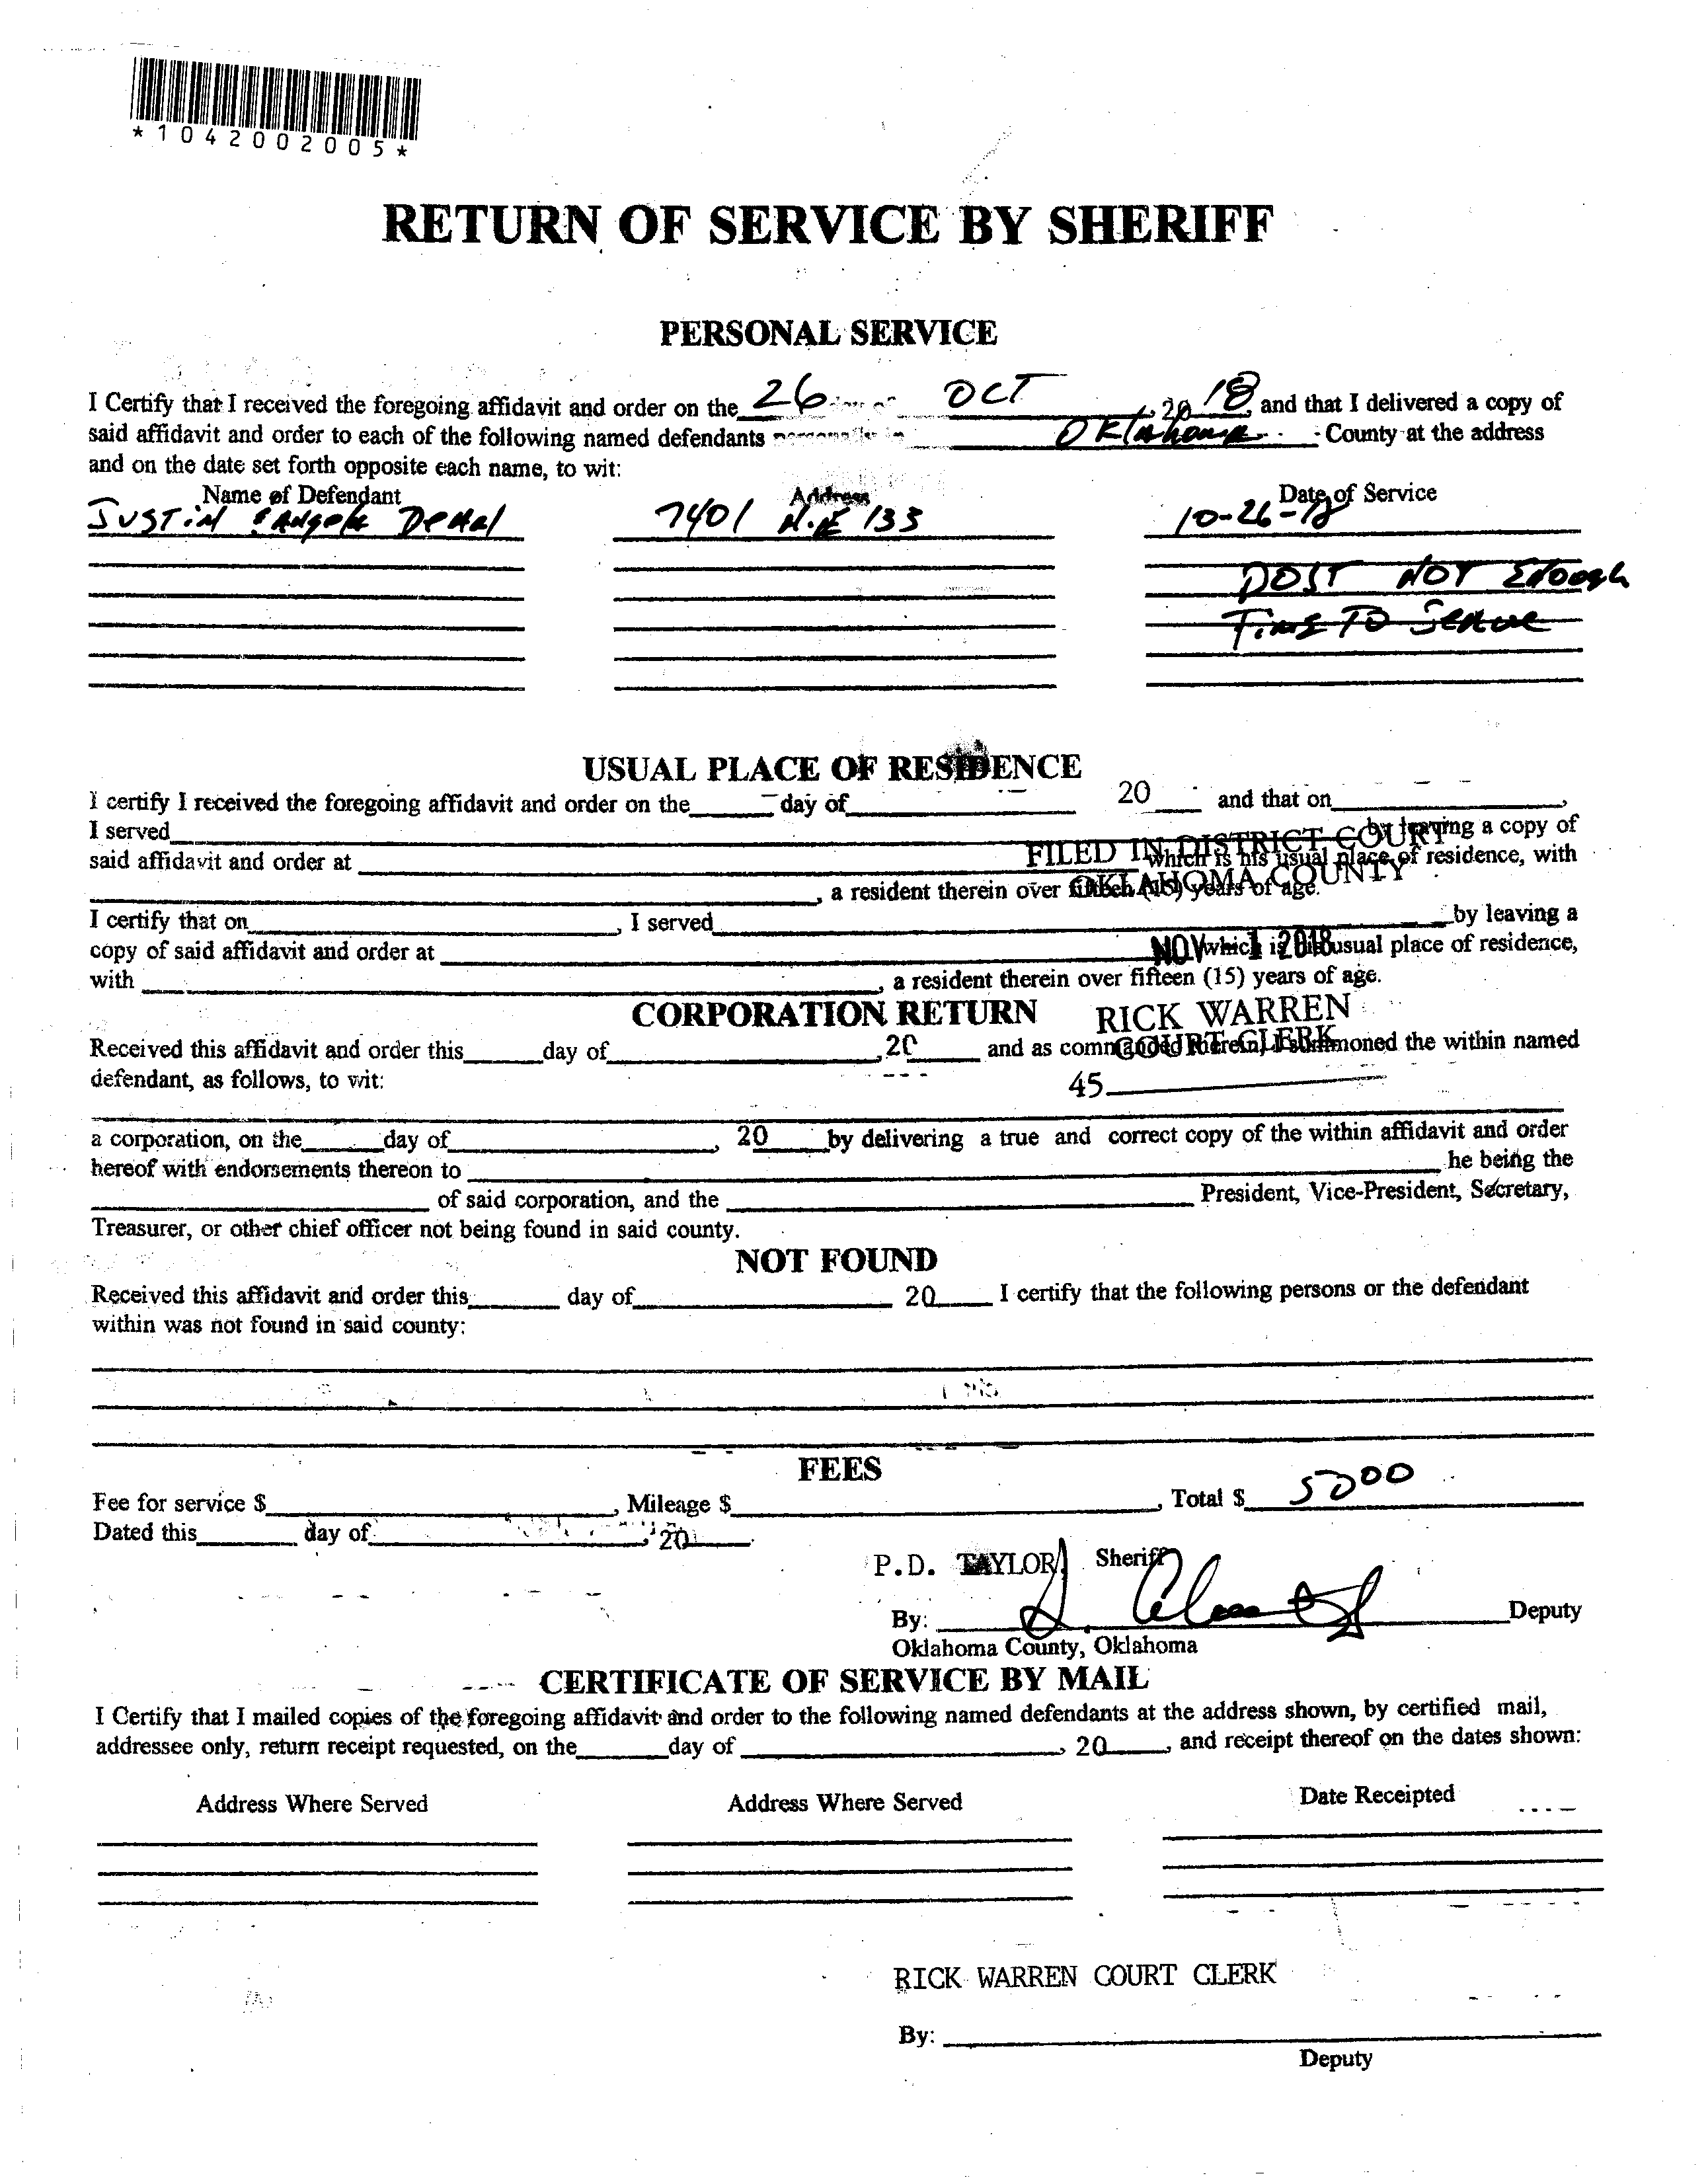 *1042002005*
RETURN OF SERVICE BY SHERIFF
PERSONAL SERVICE
I Certify that I received the foregoing affidavit and order on the 26 OCT, 20 18 and that I delivered a copy of
said affidavit and order to each of the following named defendants personally in Oklahoma County at the address
and on the date set forth opposite each name, to wit:
Name of Defendant Address Date of Service
JUSTIN & Angela 7401 N.E 133 10-26-18
POST NOT Enough
Time To Serve
USUAL PLACE OF RESIDENCE
I certify I received the foregoing affidavit and order on the____day of____ 20___ and that on____,
I served____by leaving a copy of
said affidavit and order at____which is his usual place of residence, with
____, a resident therein over fifteen (15) years of age.
FILED IN DISTRICT COURT
OKLAHOMA COUNTY
I certify that on____, I served____by leaving a
copy of said affidavit and order at____which is his usual place of residence,
NOV 1 2018
with____, a resident therein over fifteen (15) years of age.
CORPORATION RETURN
RICK WARREN
COURT CLERK
45____
Received this affidavit and order this____day of____, 20____ and as commanded therein, I summoned the within named
defendant, as follows, to wit:
a corporation, on the____day of____, 20____by delivering a true and correct copy of the within affidavit and order
hereof with endorsements thereon to____he being the
____of said corporation, and the____President, Vice-President, Secretary,
Treasurer, or other chief officer not being found in said county.
NOT FOUND
Received this affidavit and order this____ day of____ 20____ I certify that the following persons or the defendant
within was not found in said county:
FEES
Fee for service $____, Mileage $____, Total $ 5000
Dated this____ day of____, 20____.
P.D. TAYLOR, Sheriff
By:____Deputy
Oklahoma County, Oklahoma
CERTIFICATE OF SERVICE BY MAIL
I Certify that I mailed copies of the foregoing affidavit and order to the following named defendants at the address shown, by certified mail,
addressee only, return receipt requested, on the____day of____, 20____, and receipt thereof on the dates shown:
Address Where Served Address Where Served Date Receipted
RICK WARREN COURT CLERK
By:____
Deputy